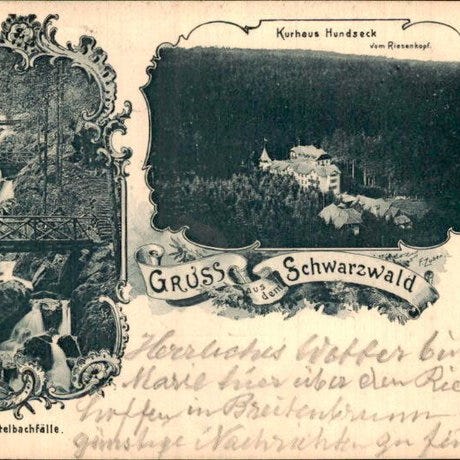 Kurhaus Hundseck
vom Riesenkopf.
GRUSS
aus dem
Schwarzwald
telbachfälle.
Herrliches Wetter bin
Marie hier über den Rie
hoffen in Breitenbrunn
günstige Nachrichten zu fin